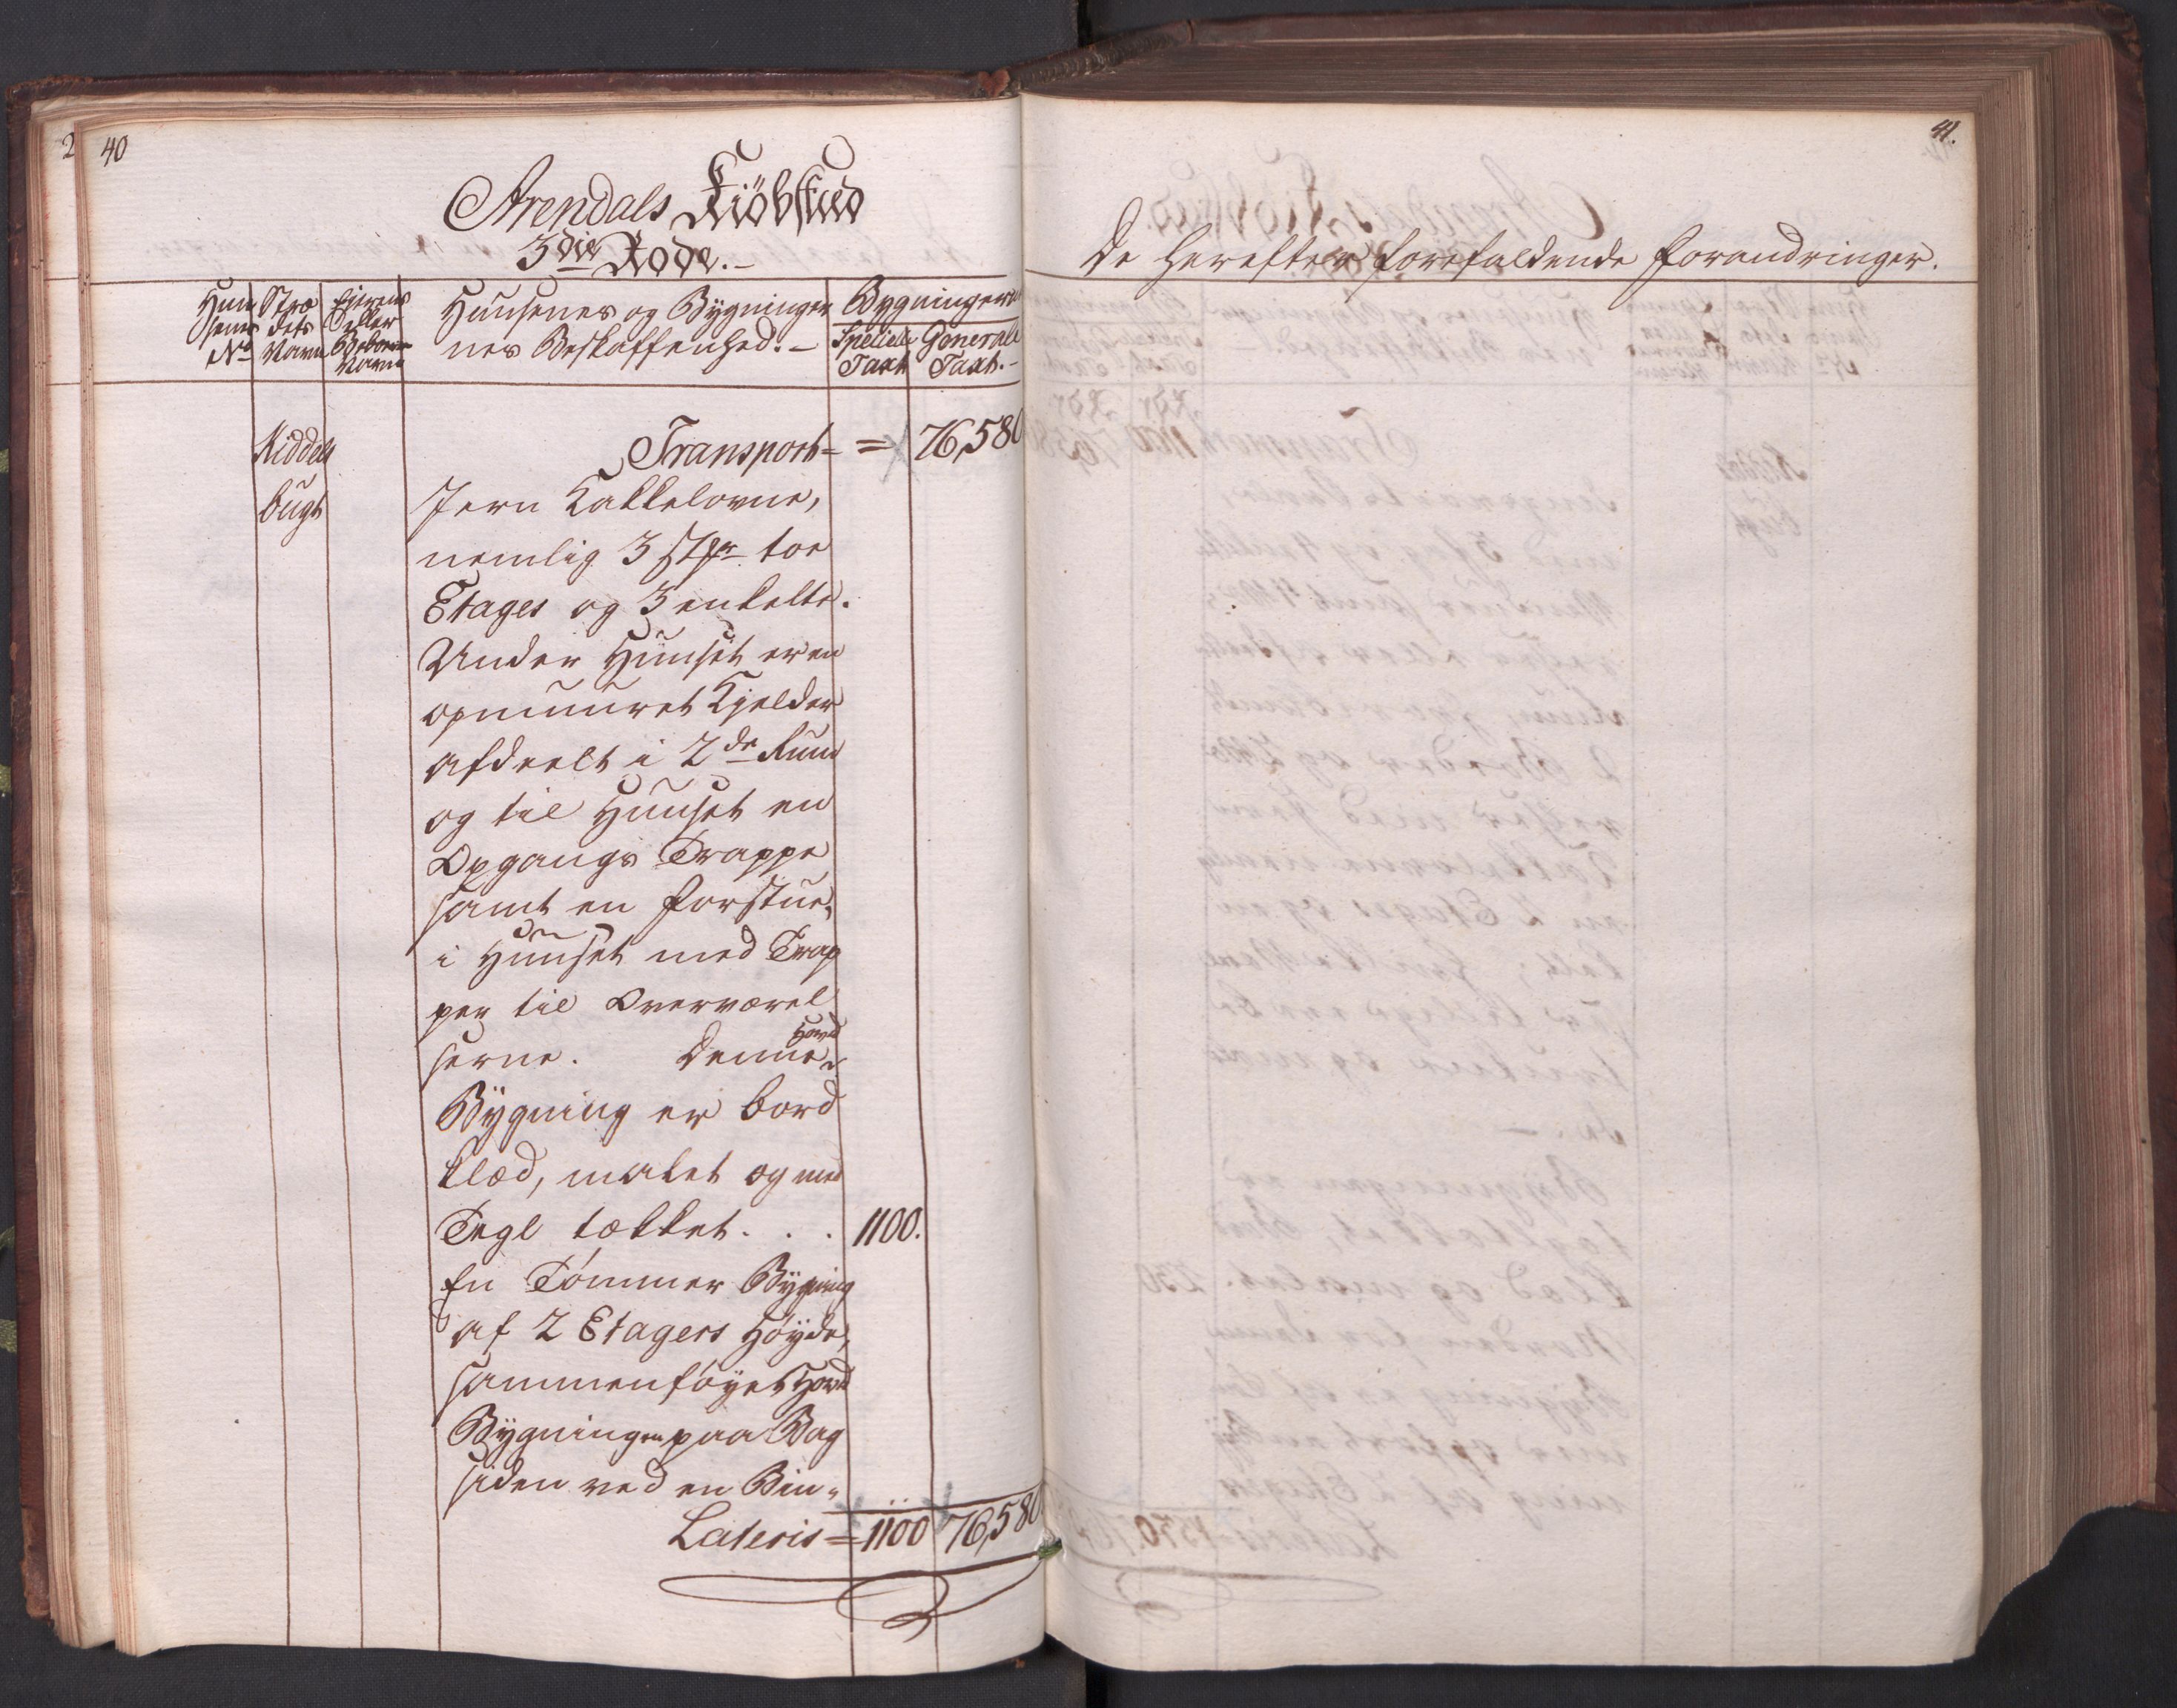 2
40
Arendals Kiöbstæd
3die Rode.-
Huu
senes
No
Stræ
dets
Navn
Ejerens
eller
Beboer
Navn
Huusenes og Bygninger
nes Beskaffenhed.-
Bygningerne
Speciale
Taxt
Generale
Taxt.-
Kiddels
bugt
Transport = = 76,580
Jern Kakkelovne,
nemlig 3 stkr toe
Etages og 3 enkelte.
Under Huuset er en
opmuuret Kjelder
afdeelt i 2de Rum
og til Huuset en
Opgangs Trappe
samt en Forstue,
i Huuset med Trap
per til Overværel
serne. Denne Hoved
Bygning er bord
klæd, malet og med
Tegl tækket. . . 1100.
En Tömmer Bygning
af 2 Etagers Höyde,
sammenföyet Hoved
Bygningen paa Bag
siden ved en Bin-
Lateris = 1100 76,580
41.
De herefter forefaldende Forandringer.